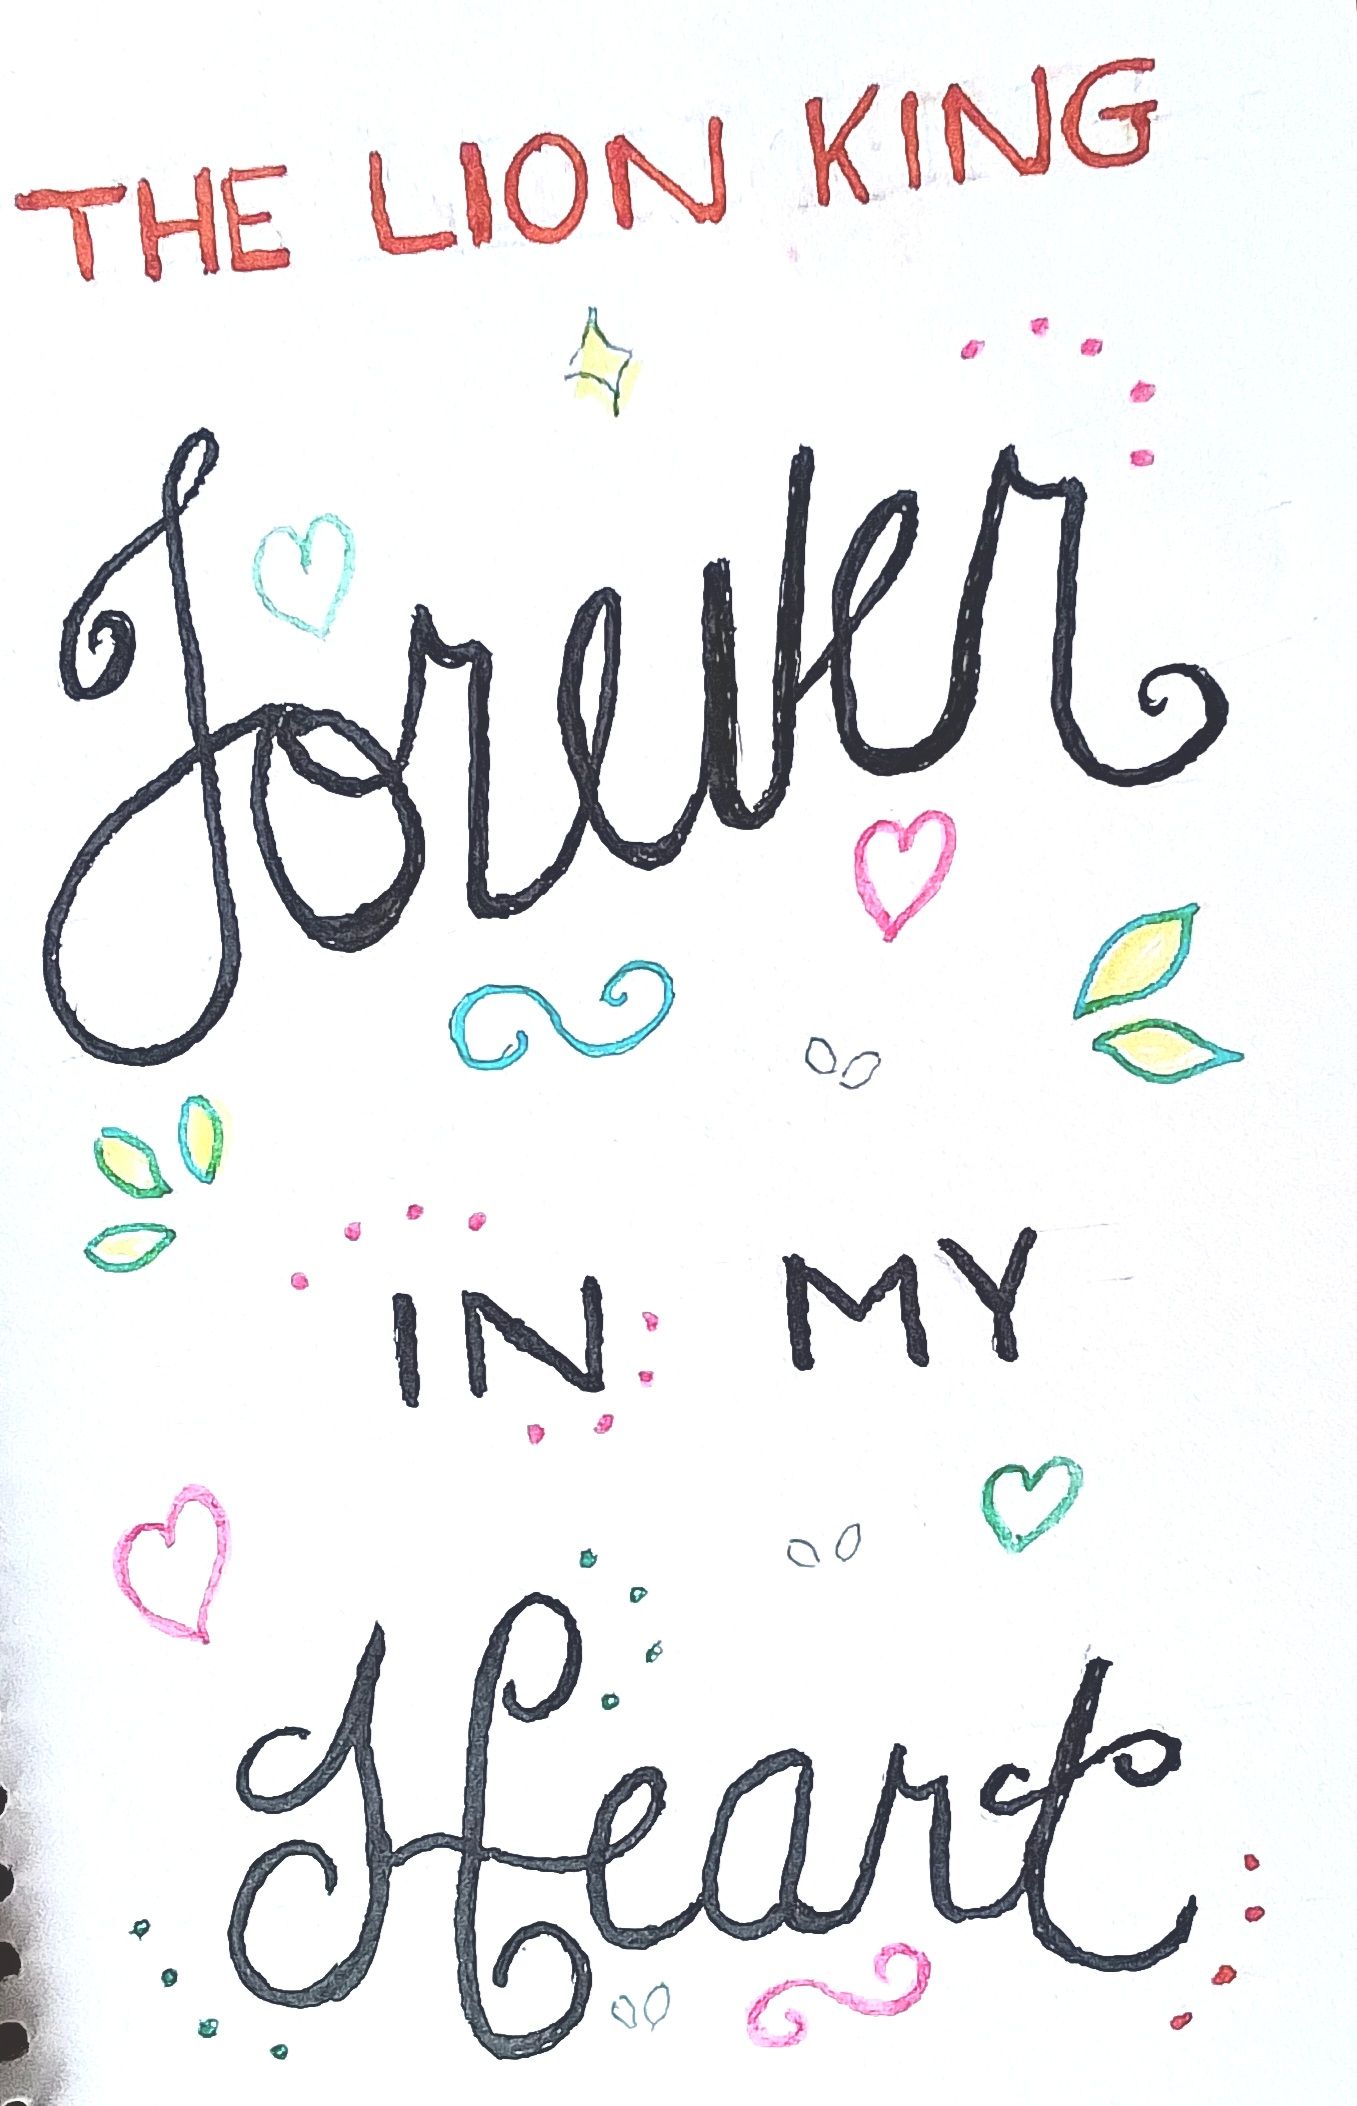 THE LION KING
Forever
IN MY
Heart